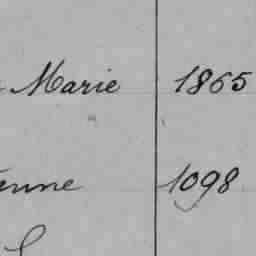 Marie 1865
enne 1098